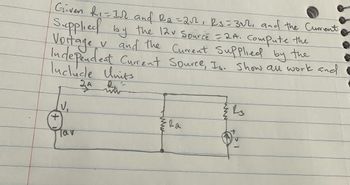 Given R₁=1Ω and R2=2Ω, R3=3Ω, and the Current
Supplied by the 12v Source = 2A. Compute the
Voltage, v and the Current Supplied by the
Independent Current Source, Is. Show all work and
Include Units
2A R₁
V₁
+
12v
R2
R3
+
V
-